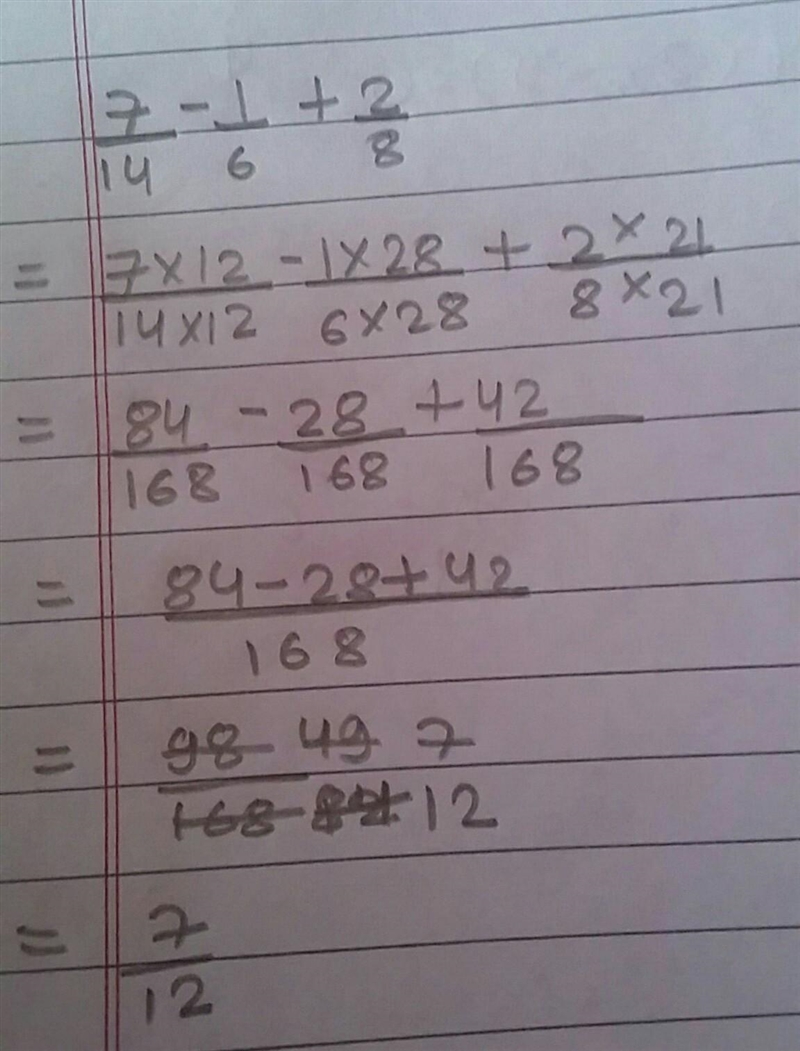 7/14 - 1/6 + 2/8
= 7×12/14×12 - 1×28/6×28 + 2×21/8×21
= 84/168 - 28/168 + 42/168
= 84-28+42/168
= 98 49 7/168 84 12
= 7/12